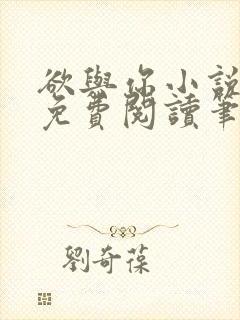 欲與你小說
免費閱讀筆
劉奇葆